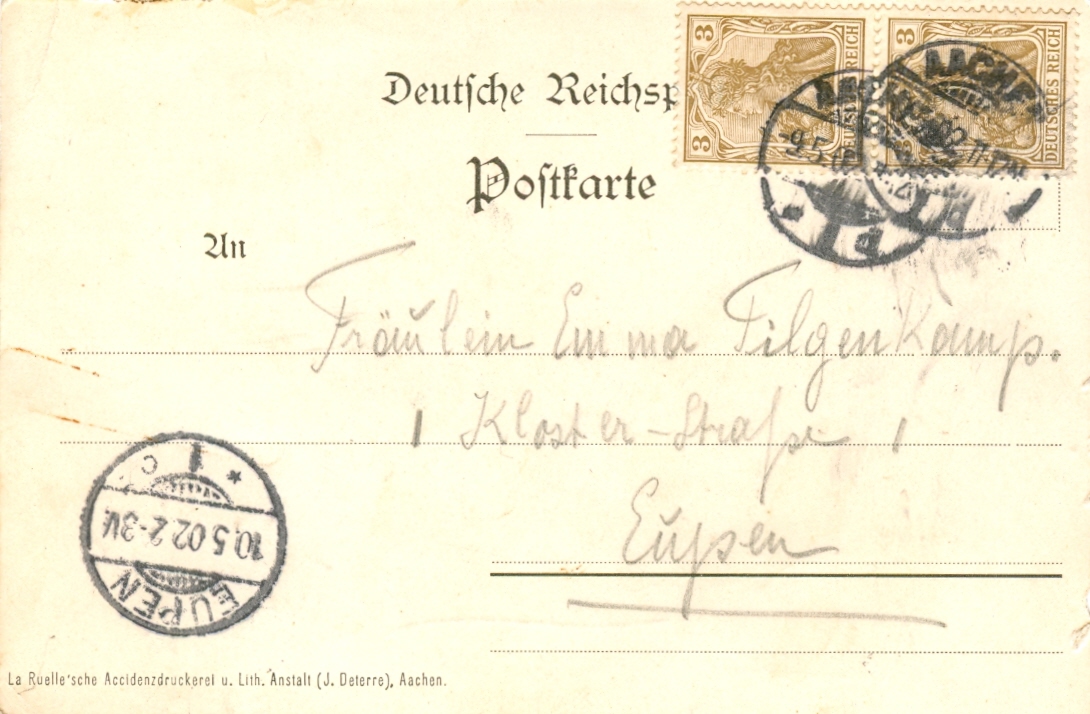 Deutsche Reichsp
Postkarte
3 3 DEUTSCHES REICH
3 DEUTSCHES REICH
AACHEN
-9.5.02
AACHEN
02.11-12N.
An
Fräulein Emma Tilgenkamp.
Kloster-Straße
Eupen
EUPEN
10.5.02.2-3N.
* 1 c
La Ruelle'sche Accidenzdruckerei u. Lith. Anstalt (J. Deterre), Aachen.